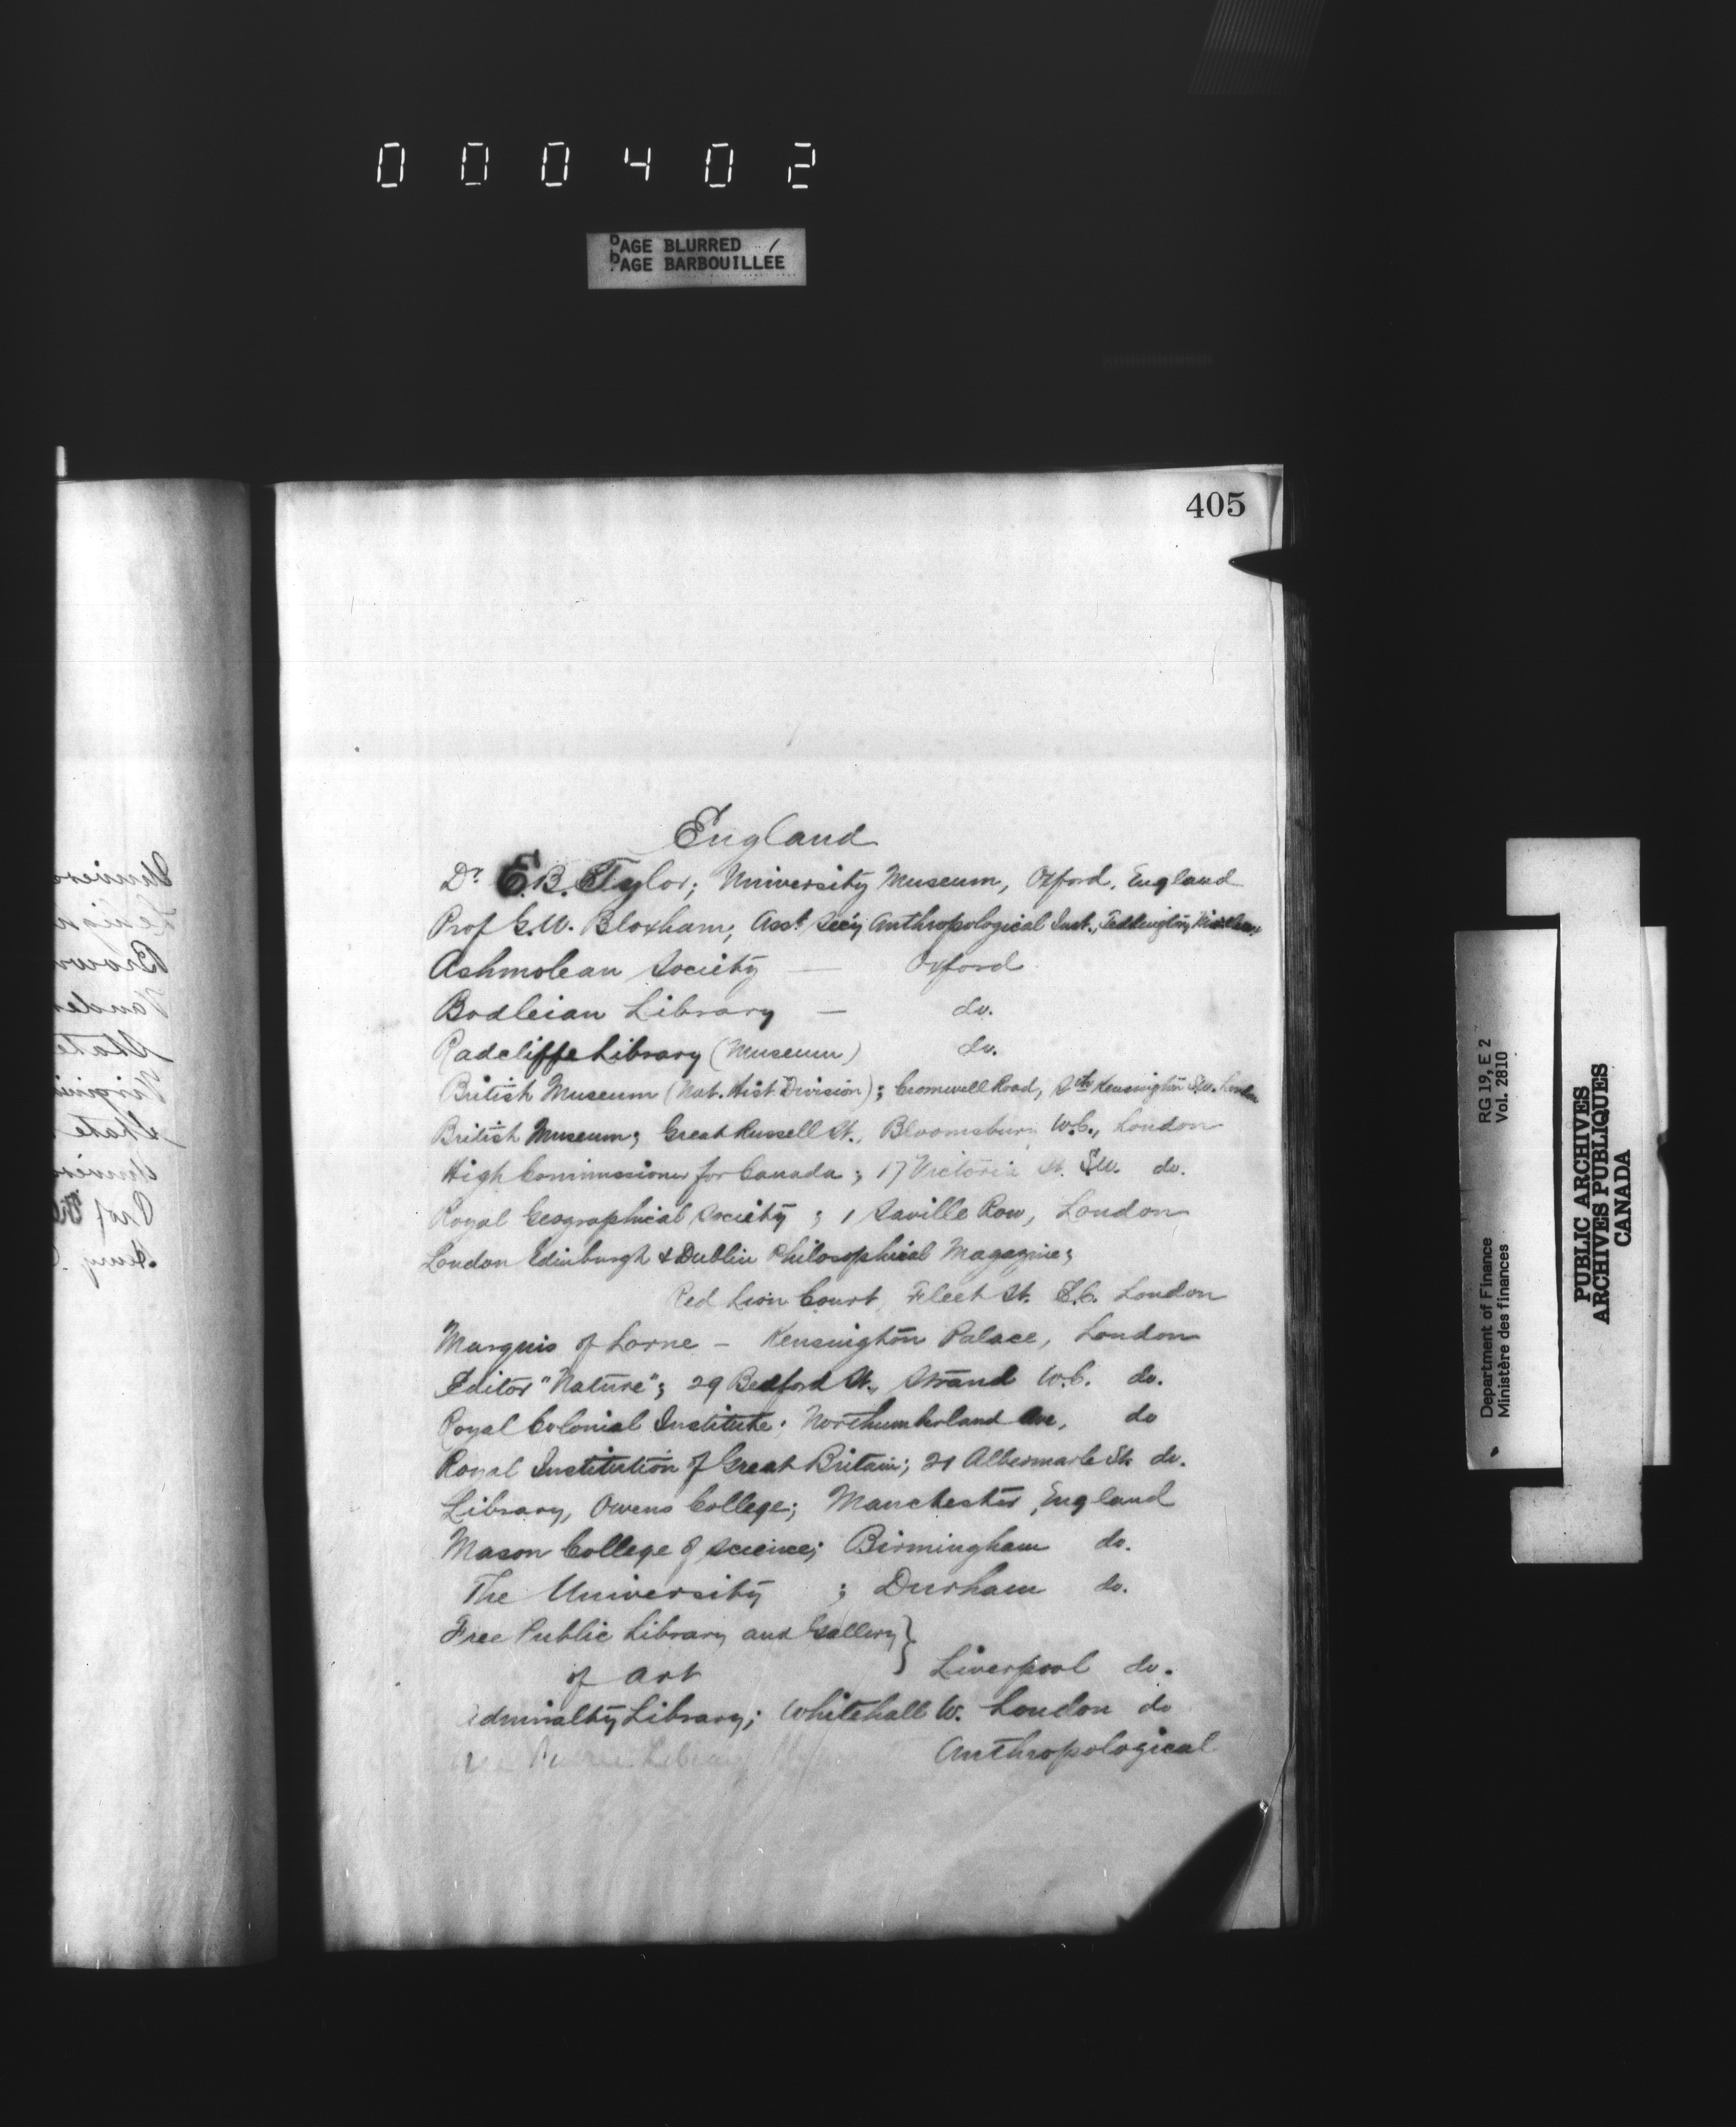 000402
PAGE BLURRED
PAGE BARBOUILLÉE
405
England
Dr. E.B. Tylor; University Museum, Oxford, England
Prof G.W. Bloxham; Asst. Sec'y Anthropological Inst., Teddington, Middlesex
Ashmolean Society — Oxford
Bodleian Library — do.
Radcliffe Library (Museum) do.
British Museum (Nat. Hist. Division); Cromwell Road, Sth Kensington S.W. London
British Museum; Great Russell St., Bloomsbury W.C., London
High Commissioner for Canada; 17 Victoria St. S.W. do.
Royal Geographical Society; 1 Saville Row, London
London Edinburgh & Dublin Philosophical Magazine;
Red Lion Court, Fleet St. E.C. London
Marquis of Lorne - Kensington Palace, London
Editor "Nature"; 29 Bedford St., Strand W.C. do.
Royal Colonial Institute; Northumberland Ave, do
Royal Institution of Great Britain; 21 Albermarle St. do.
Library, Owens College; Manchester, England
Mason College of Science; Birmingham do.
The University ; Durham do.
Free Public Library and Gallery }
of Art Liverpool do.
Admiralty Library; Whitehall W. London do
Library
Anthropological
Univers
Lehigh
Brown
Vander
State
Virgini
State
Univers
Prof
Henry
Department of Finance RG 19, E 2
Ministère des finances Vol. 2810
PUBLIC ARCHIVES
ARCHIVES PUBLIQUES
CANADA